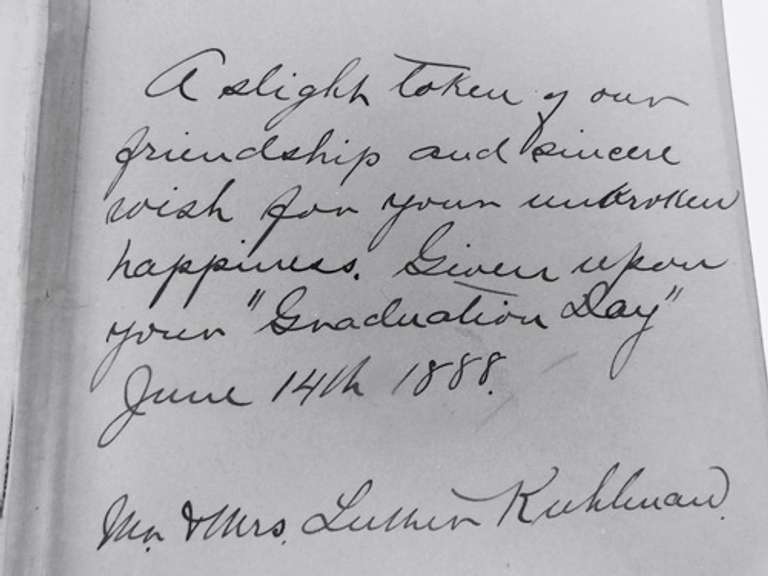 A slight token of our
friendship and sincere
wish for your unbroken
happiness. Given upon
your "Graduation Day"
June 14th 1888.
Mr. & Mrs. Luther Kuhlman.